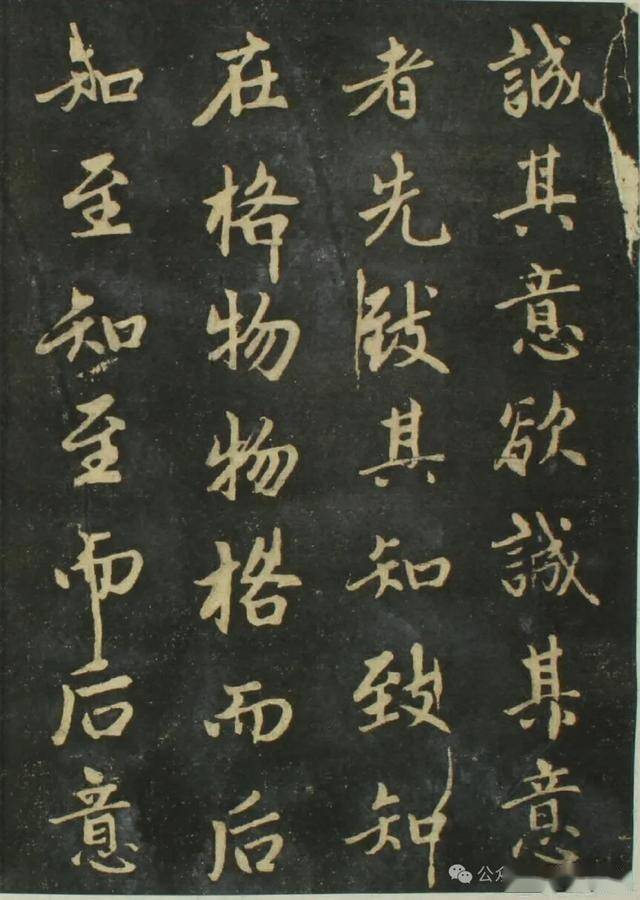 誠其意欲誠其意
者先致其知致知
在格物物格而后
知至知至而后意
公众